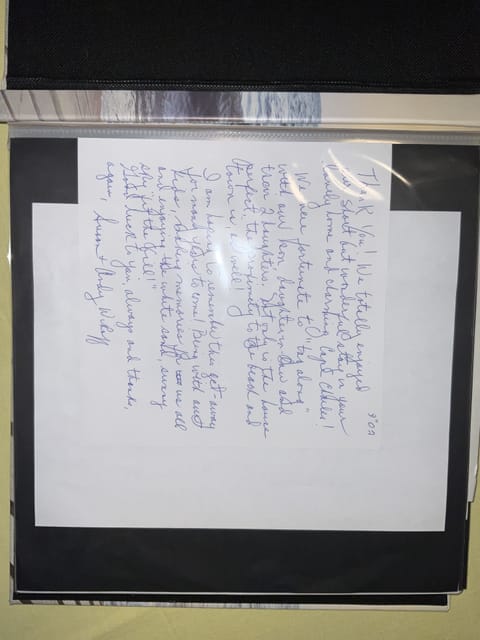 9.02
Thank You! We totally enjoyed
our short but wonderful stay in your
lovely home and charming Cape Charles!
We were fortunate to "tag along"
with our son, daughter-in-law and
their 2 daughters. Not only is the house
perfect, the proximity to the beach and
town is as well!
I am hoping to remember this get-away
for many years to come! Being with our
kids, making memories for us all
and enjoying the white sand, swing
and
Good luck to you, always and thanks,
again, Susan + Andy